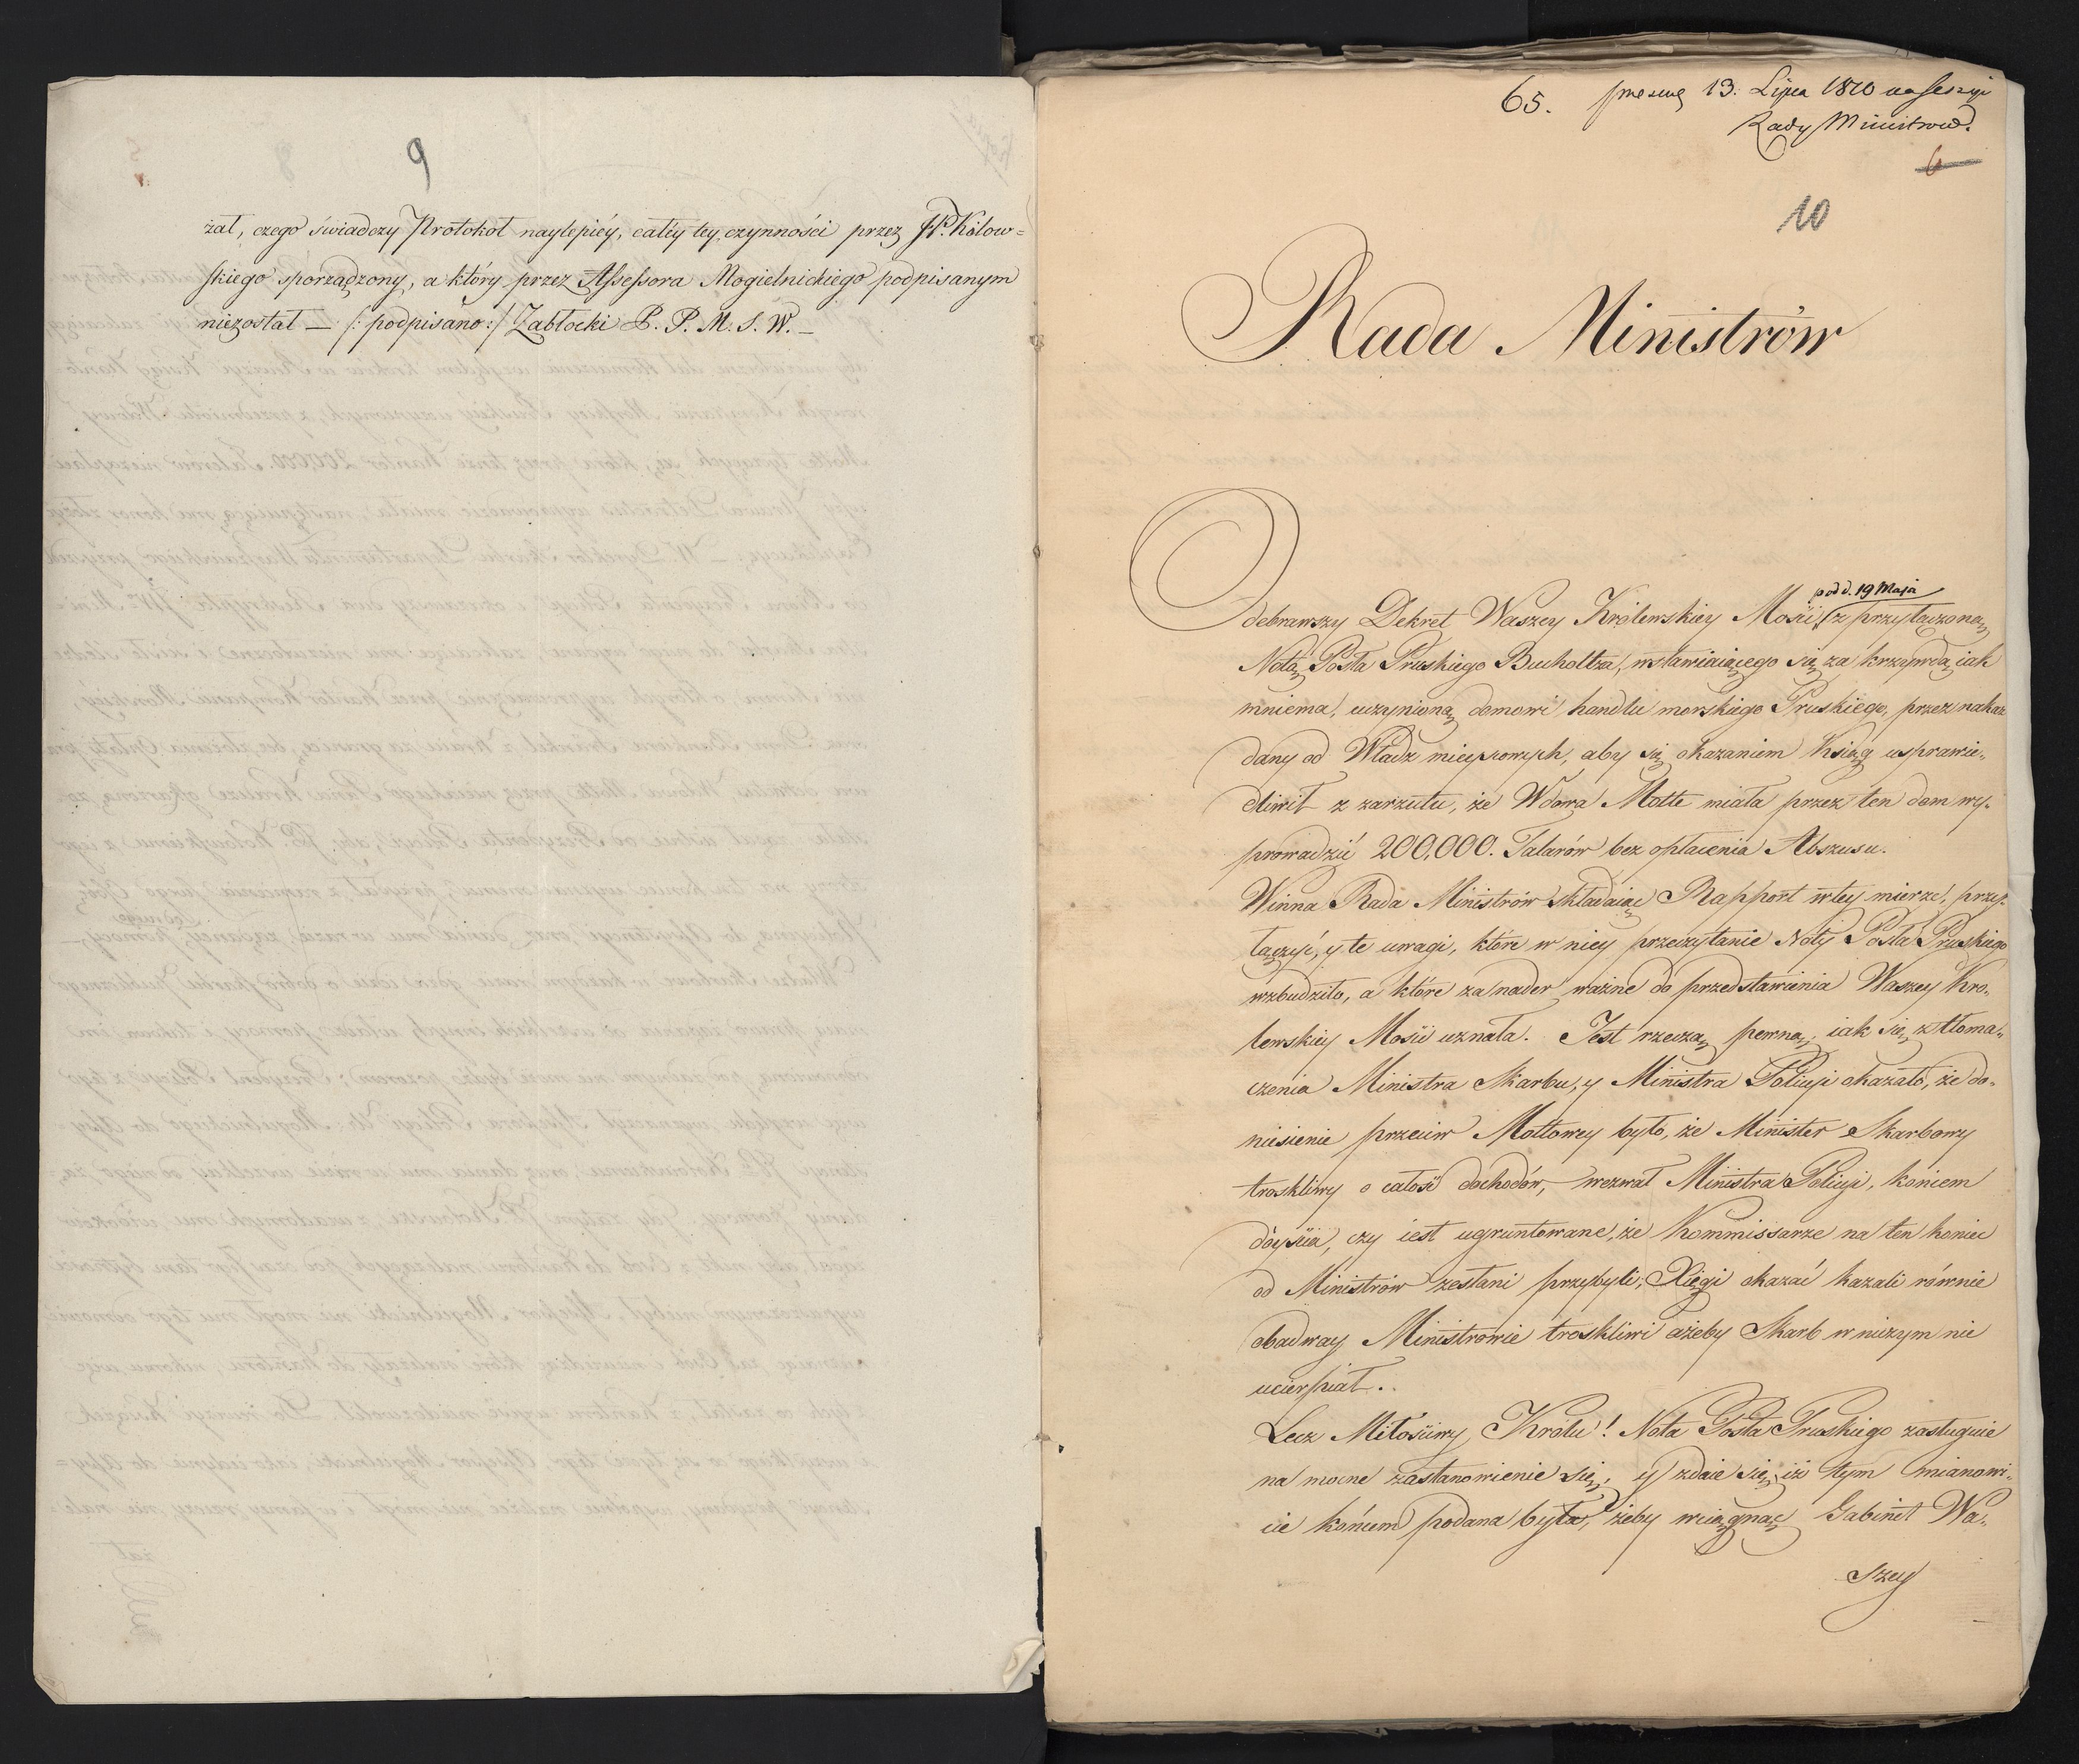 9
zał, czego świadczy Protokoł naylepiéy, całéy tey czynności przez JP. Kołow=
skiego sporządzony, a który przez Assessora Mogielnickiego podpisanym
niezostał — /: podpisano :/ Zabłocki P. P. M. S. W. —
65. 13. Lipca 1810 na Sessyi
Rady Ministrow.
6
10
Rada Ministrów
pod d. 19 Maja
Odebrawszy Dekret Waszey Królewskiey Mości, z przyłączoną
Notą Posła Pruskiego Bucholtza, wstawiaiącego się za krzywdą iak
mniema, uczynioną domowi handlu morskiego Pruskiego, przez nakaz
dany od Władz mieyscowych, aby się okazaniem Ksiąg usprawie-
dliwił z zarzutu, że Wdowa Motte miała przez ten dom wy-
prowadzić 200,000. Talarów bez opłacenia Abszusu.
Winna Rada Ministrów składaiąc Rapport w tey mierze, przy-
łączyć, y te uwagi, które w niey przeczytanie Noty Posła Pruskiego
wzbudziło, a które za nader ważne do przedstawienia Waszey Kró-
lewskiey Mości uznała. Jest rzeczą pewną, iak się z tłoma-
czenia Ministra Skarbu, y Ministra Policyi okazało, że do-
niesienie przeciw Mottowey było, że Minister Skarbowy
troskliwy o całość dochodów, wezwał Ministra Policyi, końcem
doyścia, czy iest ugruntowane, że Kommissarze na ten koniec
od Ministrów zesłani przybyli, Xięgi okazać kazali równie
obadway Ministrowie troskliwi ażeby Skarb w niczym nie
ucierpiał.
Lecz Miłościwy Królu! Nota Posła Pruskiego zasługuie
na mocne zastanowienie się, y zdaie się iż tym mianowi-
cie końcem podana była, żeby wciągnąć Gabinet Wa-
szey